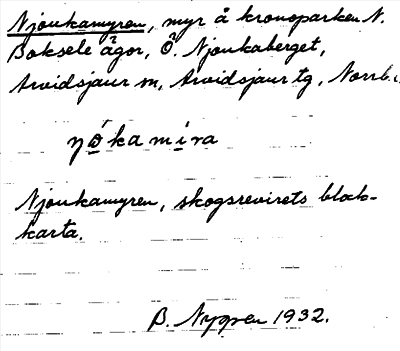 Njoukamyren, myr å kronoparken N.
Boksele ågor, Ö. Njoukaberget,
Arvidsjaur sn, Arvidsjaur tg, Norrb.
ŋókamira
Njoukamyren, skogsrevirets block-
karta.
B. Nygren 1932.